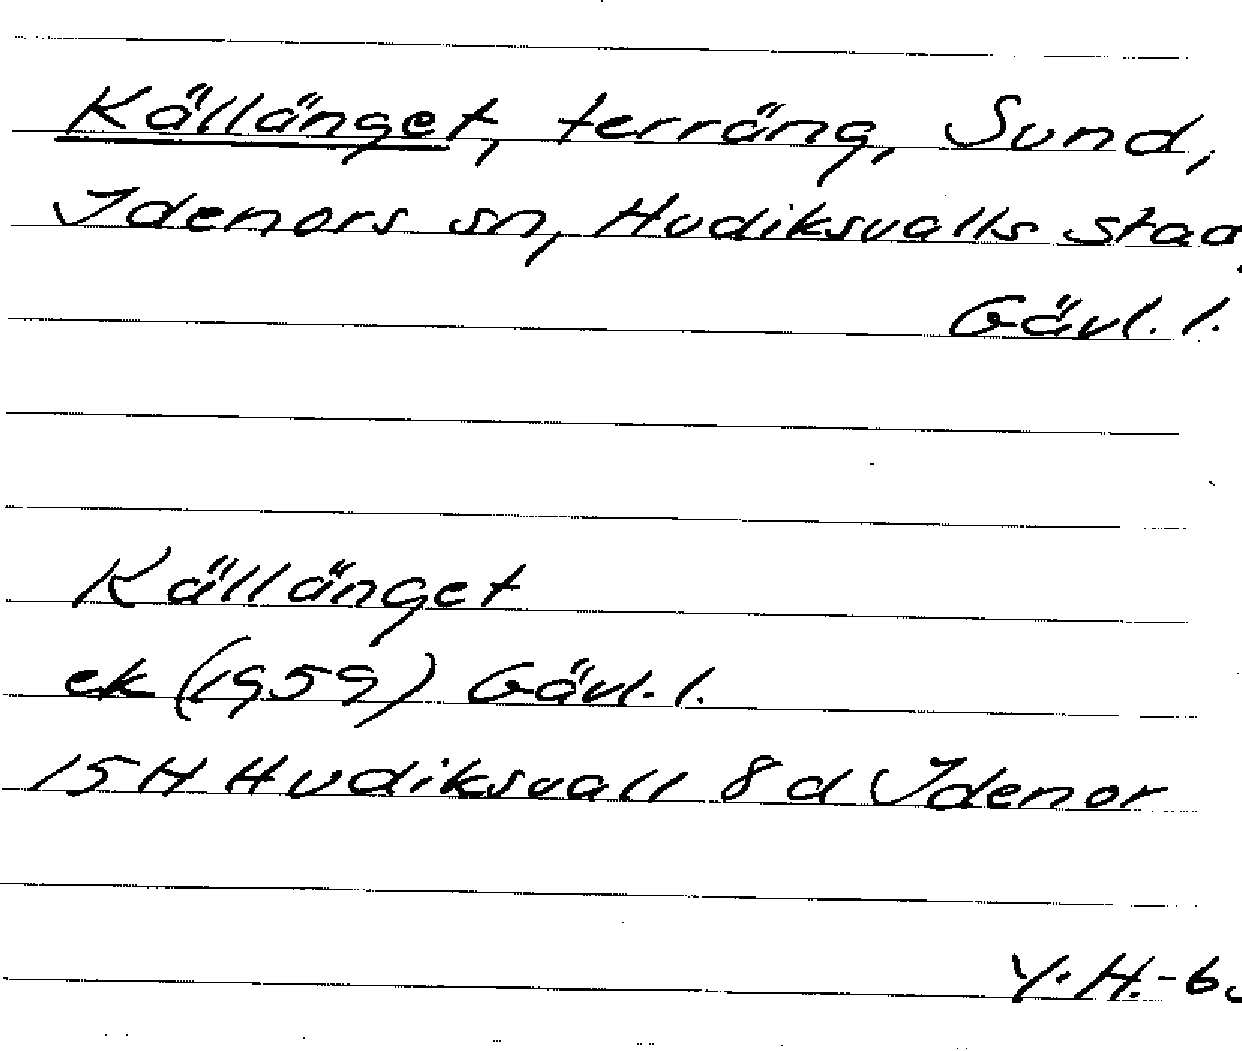 Källänget, terräng, Sund,
Idenors sn, Hudiksvalls stad,
Gävl. l.
Källänget
ek (1959) Gävl. l.
15H Hudiksvall 8d Idenor
Y. H.-6